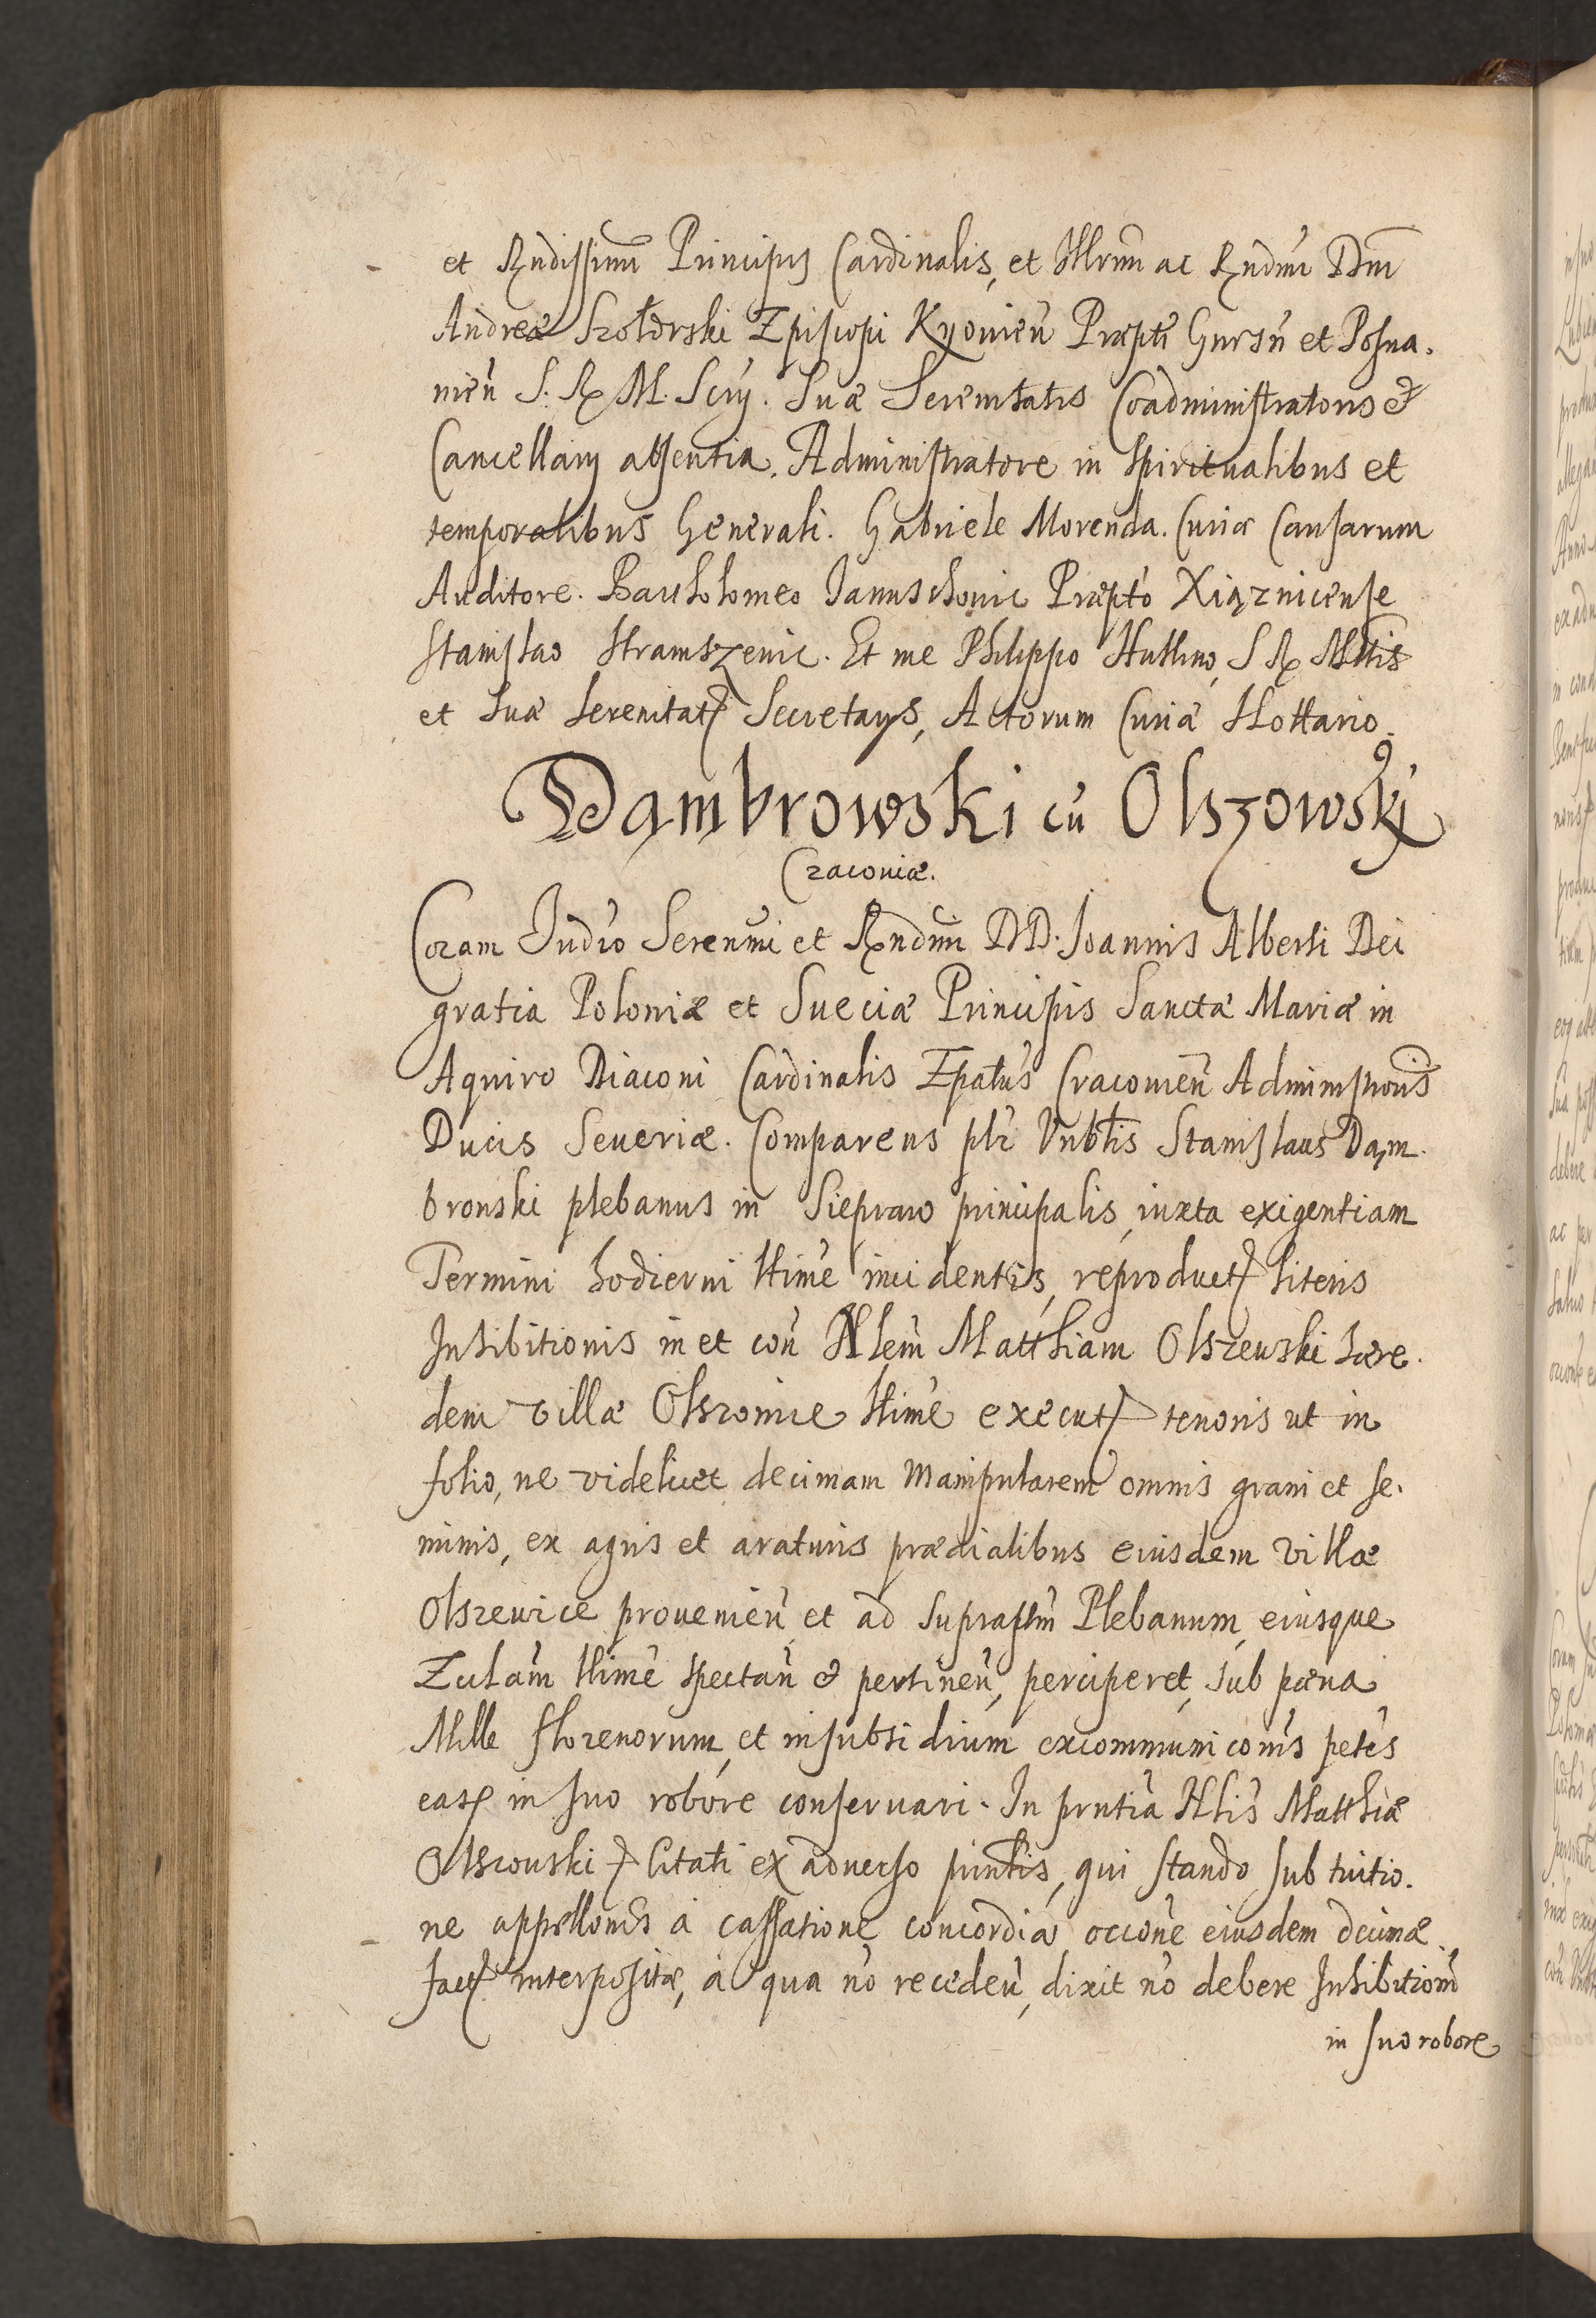 et Rndissimi Principis Cardinalis, et Illrmi ac Rndmi Dni
Andreæ Szołdrski Episcopi Kyouień Præpti Gnesń et Posna.
nień S. R. M. Scrij. Suæ Serenitatis Coadministratoris &
Cancellarij absentia. Administratore in spiritualibus et
temporalibus Generali. Gabriele Morenda. Curiæ Causarum
Auditore. Bartholomeo Januschouic Præpto Xiąznicense
Stanislao Stramszenic. Et me Philippo Huttino, S R Mttis
et Suæ Serenitatis Secretarijs, Actorum Curiæ Nottario.
Dąmbrowski cū Olszowskj
Cracouiæ.
Coram Judio Serenmi et Rndmi DD. Joannis Alberti Dei
gratia Poloniæ et Sueciæ Principis Sanctæ Mariæ in
Aquiro Diaconi Cardinalis Epatus Cracouień Administroris
Ducis Seueriæ. Comparens plr Vnblis Stanislaus Dąm.
brouski plebanus in Siepraw principalis, iuxta exigentiam
Termini hodierni ltime incidentis, reproductis literis
Inhibitionis in et con Nlem Matthiam Olszewski hære.
dem villæ Olszouice ltime executis tenoris ut in
folio, ne videlicet decimam manipularem omnis grani et se.
minis, ex agris et araturis prædialibus eiusdem villæ
Olszeuice prouenień et ad suprasstm Plebanum, eiusque
Ecclam ltime spectań & pertineń, perciperet, sub pæna
Mille florenorum, et in subsidium excommuniconis petes
eas in suo robore conseruari. In prntia Nlis Matthiæ
Olszouski Citati ex aduerso prīntis, qui stando sub tuitio.
ne appellonis a cassatione concordiæ occone eiusdem decimæ
factis interpositæ, a qua no recedeń, dixit no debere Inhibitiom
in suo robore